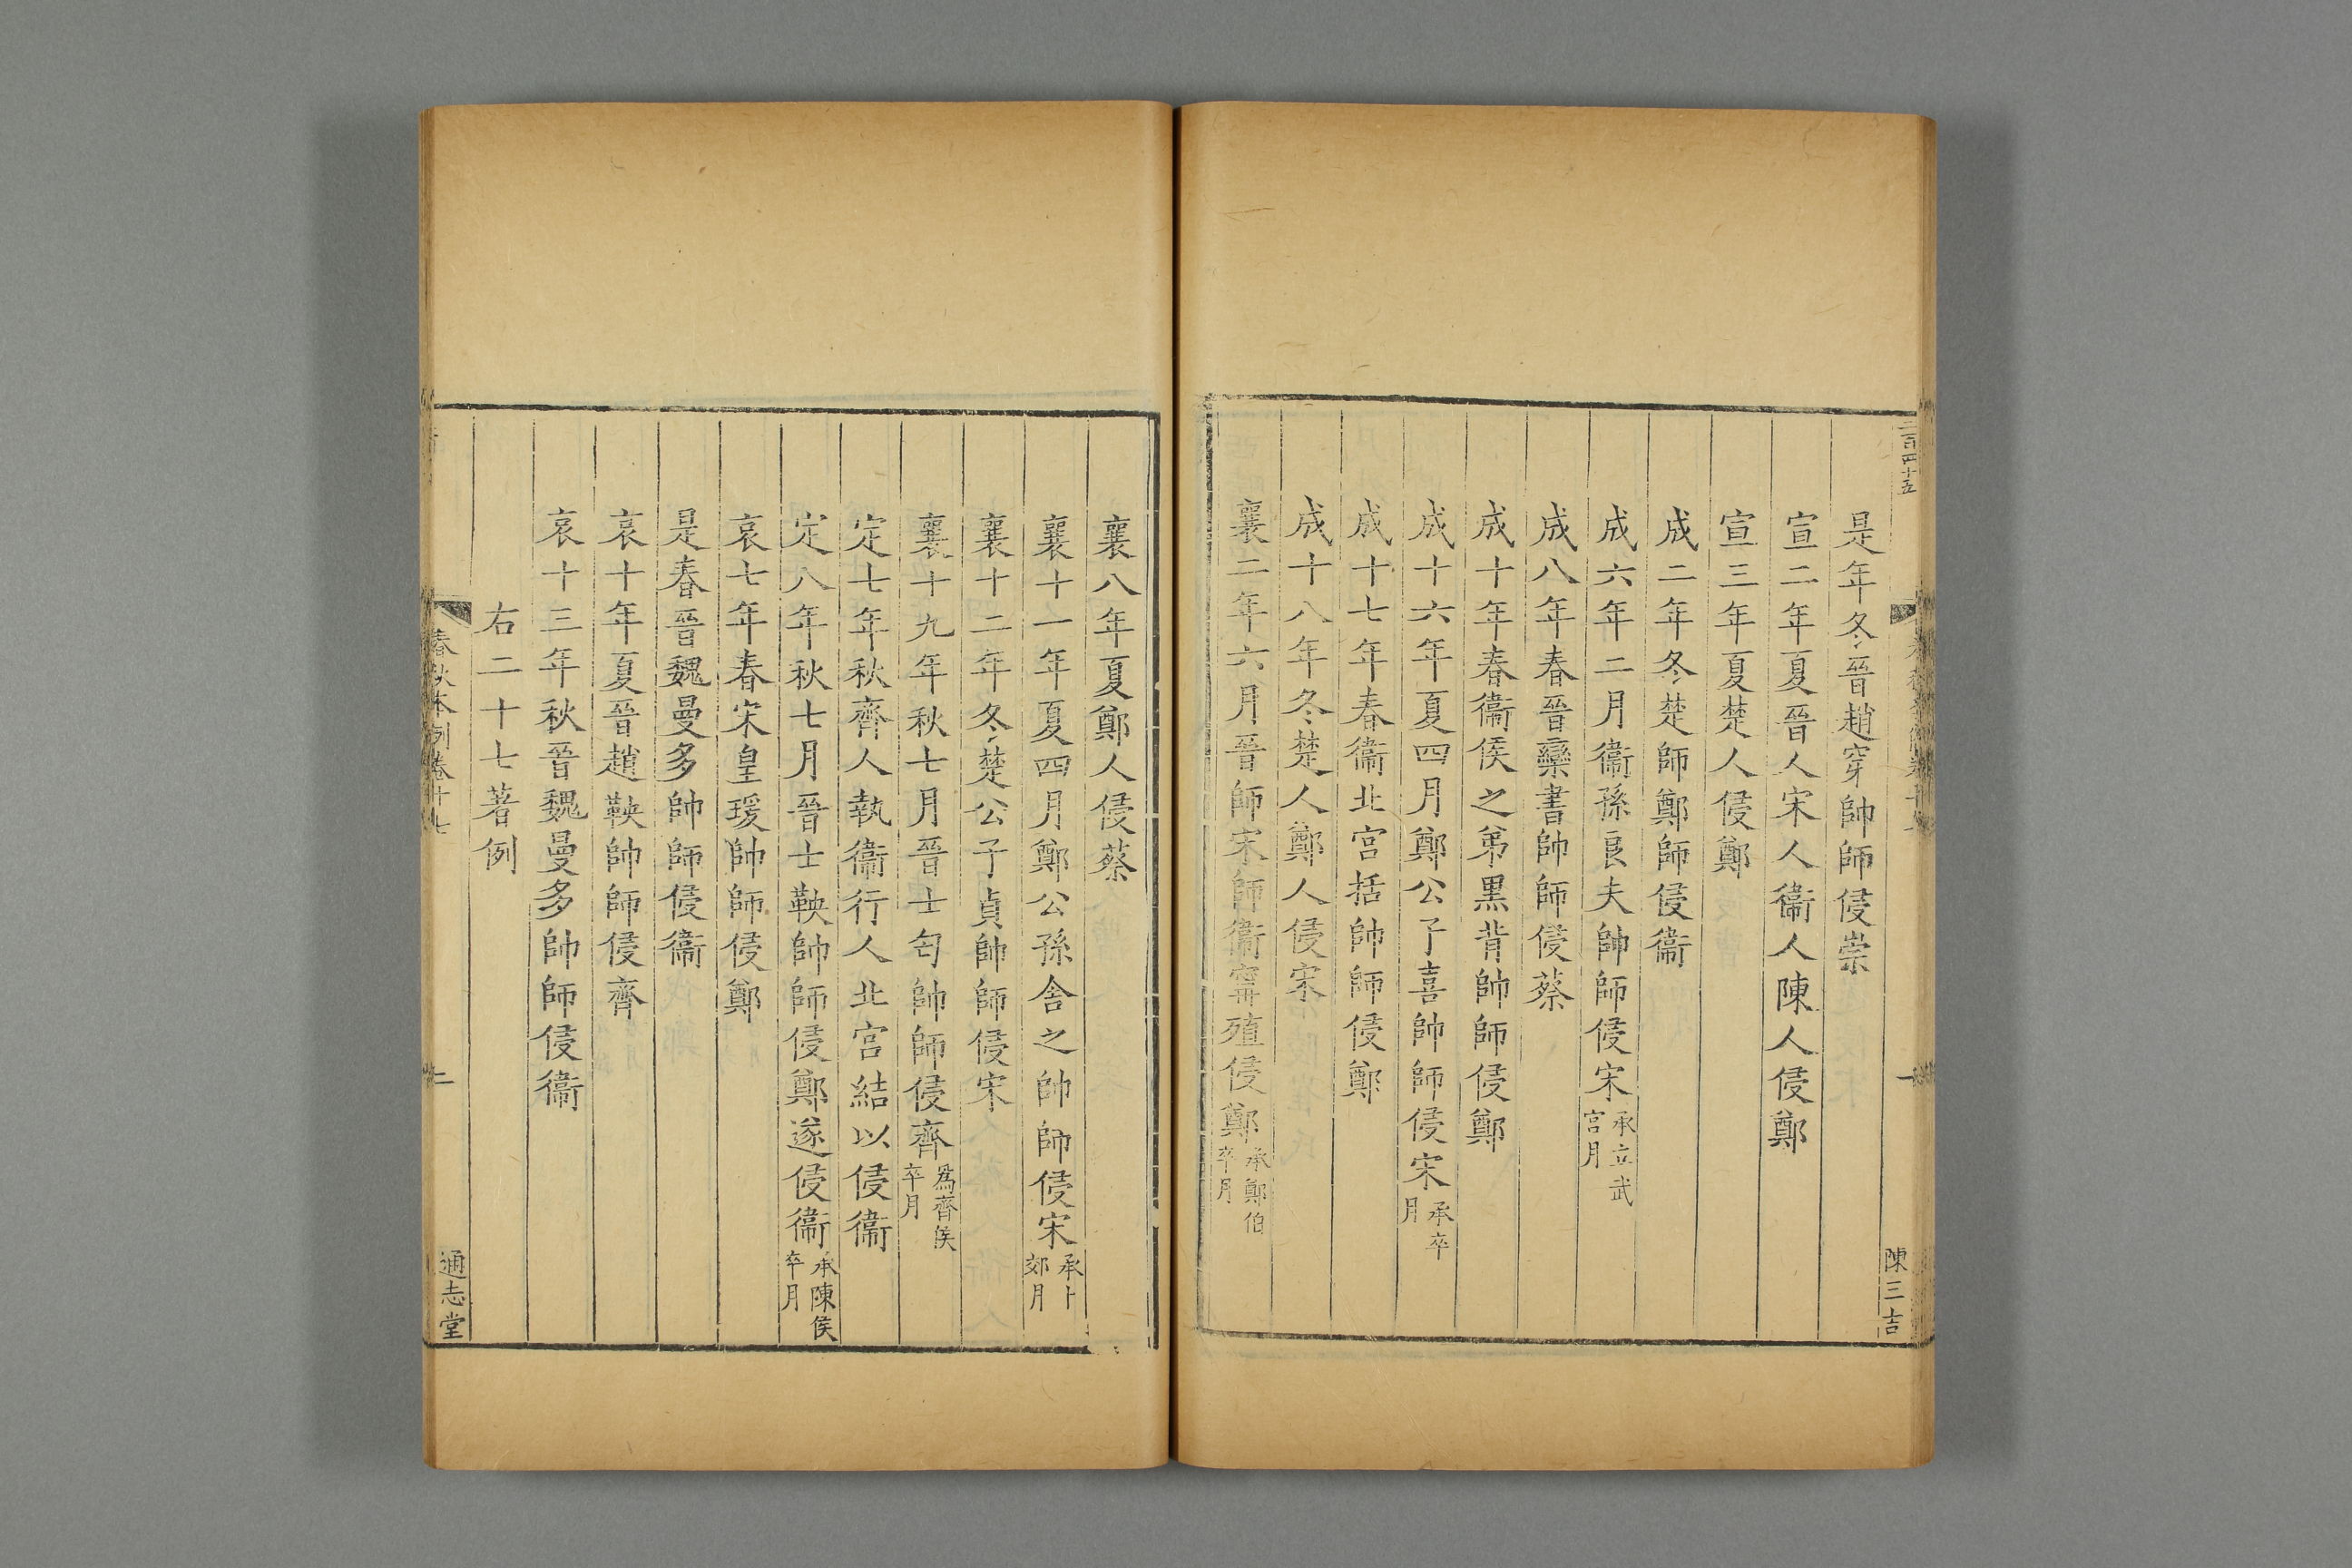 二百四十五
陳三吉
是年冬晉趙穿帥師侵崇
宣二年夏晉人宋人衞人陳人侵鄭
宣三年夏楚人侵鄭
成二年冬楚師鄭師侵衞
成六年二月衞孫良夫帥師侵宋承立武宮月
成八年春晉欒書帥師侵蔡
成十年春衞侯之弟黑背帥師侵鄭
成十六年夏四月鄭公子喜帥師侵宋承卒月
成十七年春衞北宮括帥師侵鄭
成十八年冬楚人鄭人侵宋
襄二年六月晉師宋師衞甯殖侵鄭承鄭伯卒月
襄八年夏鄭人侵蔡
襄十一年夏四月鄭公孫舍之帥師侵宋承卜郊月
襄十二年冬楚公子貞帥師侵宋
襄十九年秋七月晉士匄帥師侵齊爲齊侯卒月
定七年秋齊人執衞行人北宮結以侵衞
定八年秋七月晉士鞅帥師侵鄭遂侵衞承陳侯卒月
哀七年春宋皇瑗帥師侵鄭
是春晉魏曼多帥師侵衞
哀十年夏晉趙鞅帥師侵齊
哀十三年秋晉魏曼多帥師侵衞
右二十七著例
春秋本例卷十七
二
通志堂